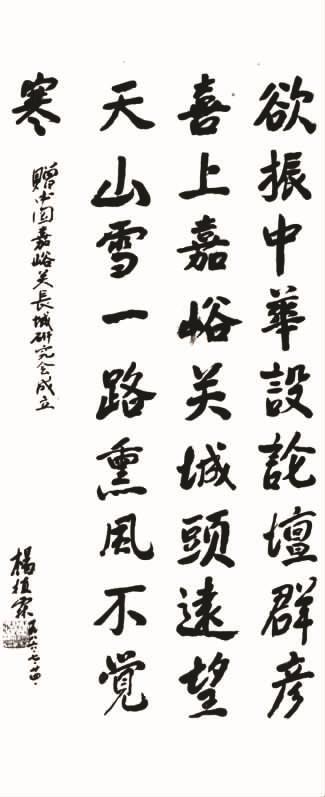 欲振中華設論壇群彦
喜上嘉峪关城頭遠望
天山雪一路熏風不覺
寒
贈中国嘉峪关長城研究会成立
楊植霖